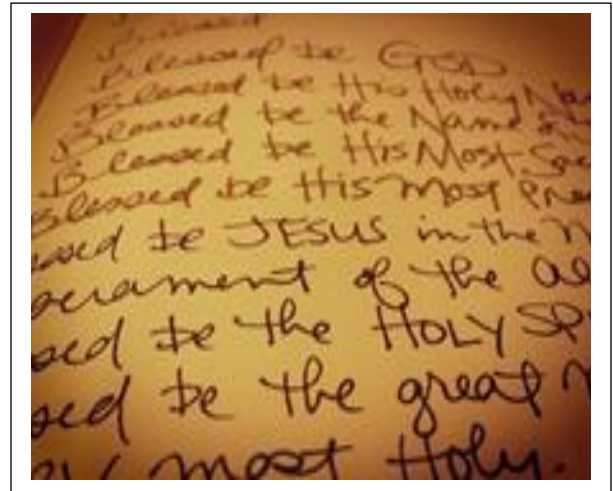 Blessed
Blessed be GOD
Blessed be His Holy Na
Blessed be the Name
Blessed be His Most Sac
Blessed be His most Pre
ssed be JESUS in the M
acrament of the al
sed be the HOLY SPI
sed be the great M
most Holy.